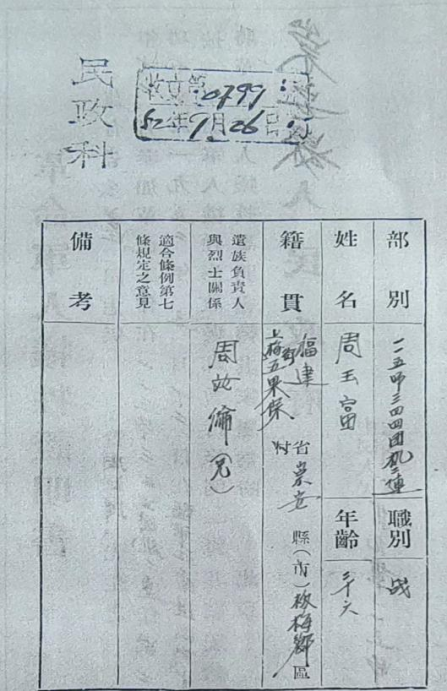 民政科
收文第0799號
25年6月26日
部別 一一五師三四四团机三連 職別 战
姓名 周玉富 年齡 三十六
籍貫 福建省崇安縣(市)板梅鄉區
上梅五果保村
遺族負責人與烈士關係 周奴倫(兄)
適合條例第七條規定之意見
備考